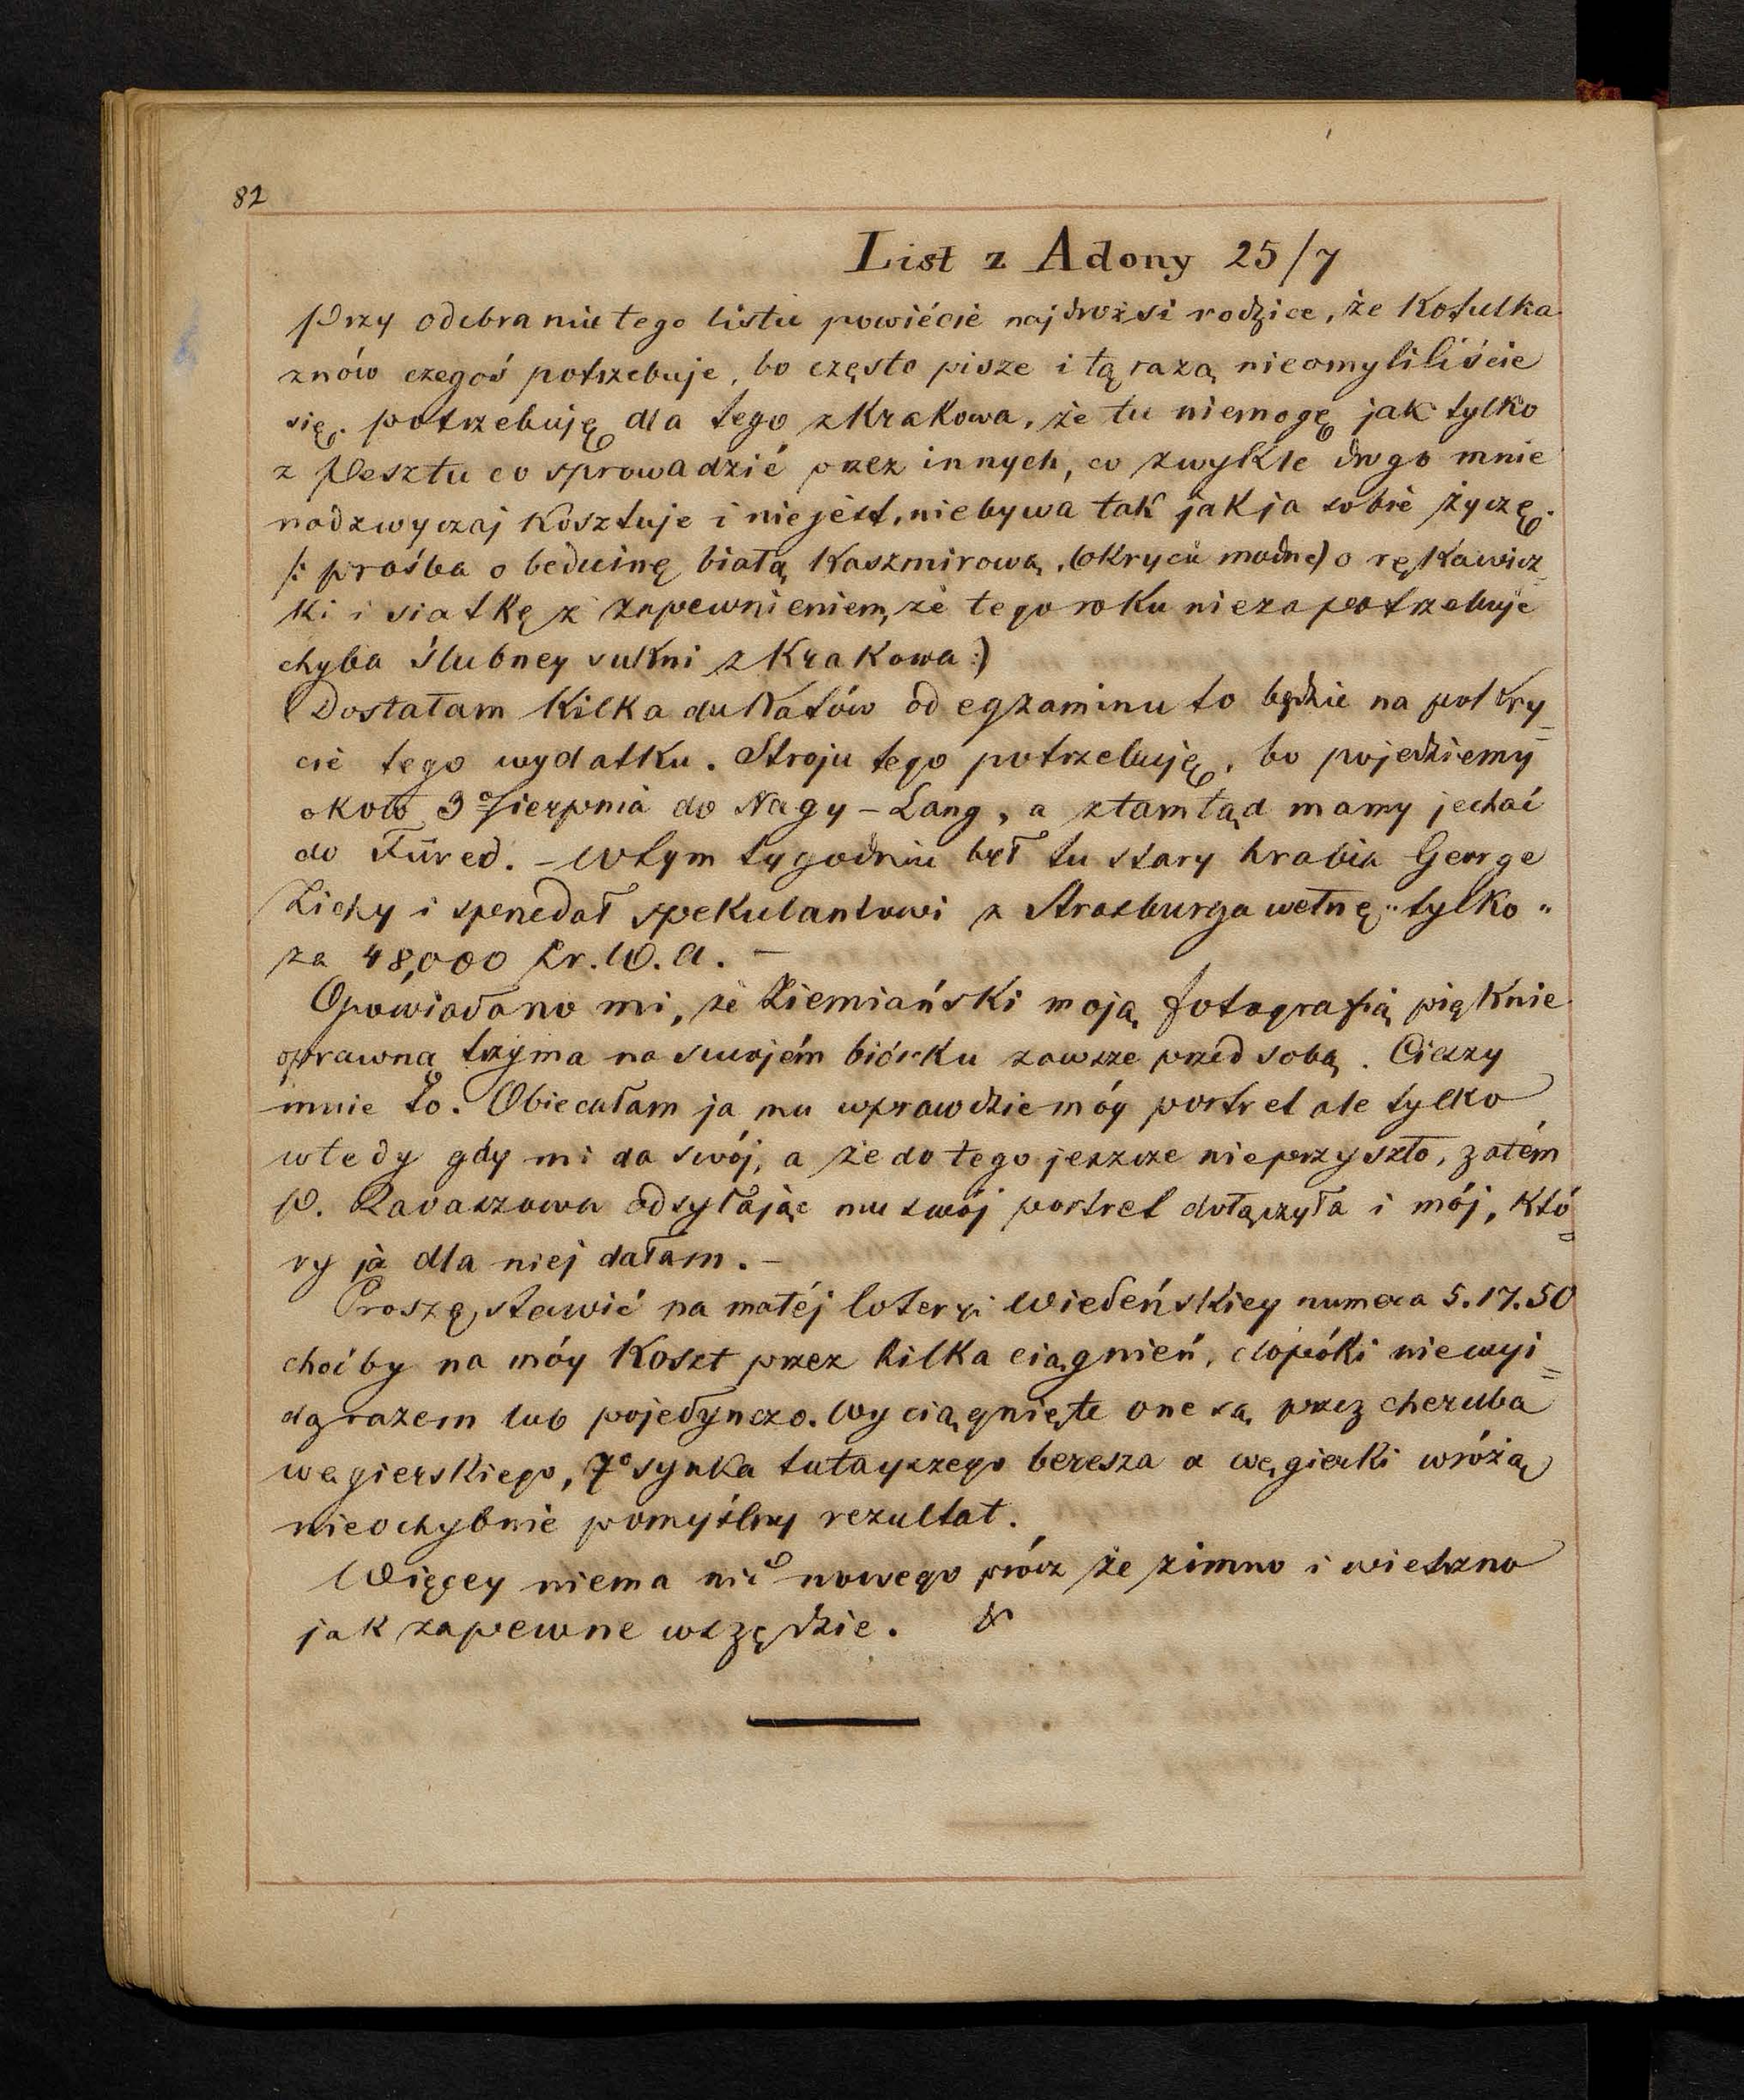 82
List z Adony 25/7
Przy odebraniu tego listu powiécie najdrożsi rodzice, że Kotulka
znów czegoś potrzebuje, bo często pisze i tą razą nieomyliliście
się. potrzebuję dla tego z Krakowa, że tu niemogę jak tylko
z Pesztu co sprowadzić przez innych, co zwykle drogo mnie
nadzwyczaj kosztuje i nie jest, niebywa tak jak ja sobie życzę.
/: prośba o beduinę białą Kaszmirową, (okrycie modne) o rękawicz=
ki i siatkę z zapewnieniem, że tego roku niezapotrzebuje
chyba ślubney sukni z Krakowa :)
Dostałam kilka dukatów od egzaminu to będzie na pokry=
cie tego wydatku. Stroju tego potrzebuję, bo pojedziemy
około 3º Sierpnia do Nagy-Lang, a ztamtąd mamy jechać
do Füred. – W tym tygodniu był tu stary hrabia George
Zichy i sprzedał spekulantowi z Strasburga wełnę „tylko"
za 48,000 Zr. W. A. –
Opowiadano mi, że Ziemiański moją fotografią pięknie
oprawną trzyma na swojém biórku zawsze przed sobą. Cieszy
mnie to. Obiecałam ja mu wprawdzie móy portret ale tylko
wtedy gdy mi da swój, a że do tego jeszcze nieprzyszło, zatém
P. Ravaszowa odsyłając mu swój portret dołączyła i mój, któ=
ry ja dla niej dałam. –
Proszę stawić na małéj loteryi Wiedeńskiey numera 5.17.50
choćby na móy koszt przez kilka ciągnień, dopóki niewyi=
dą razem lub pojedynczo. Wyciągnięte one są przez cheruba
węgierskiego, 7º synka tutayszego beresza a węgierki wróżą
nieochybnie pomyślny rezultat.
Więcey niema nic nowego prócz że zimno i wietrzno
jak zapewne wszędzie.